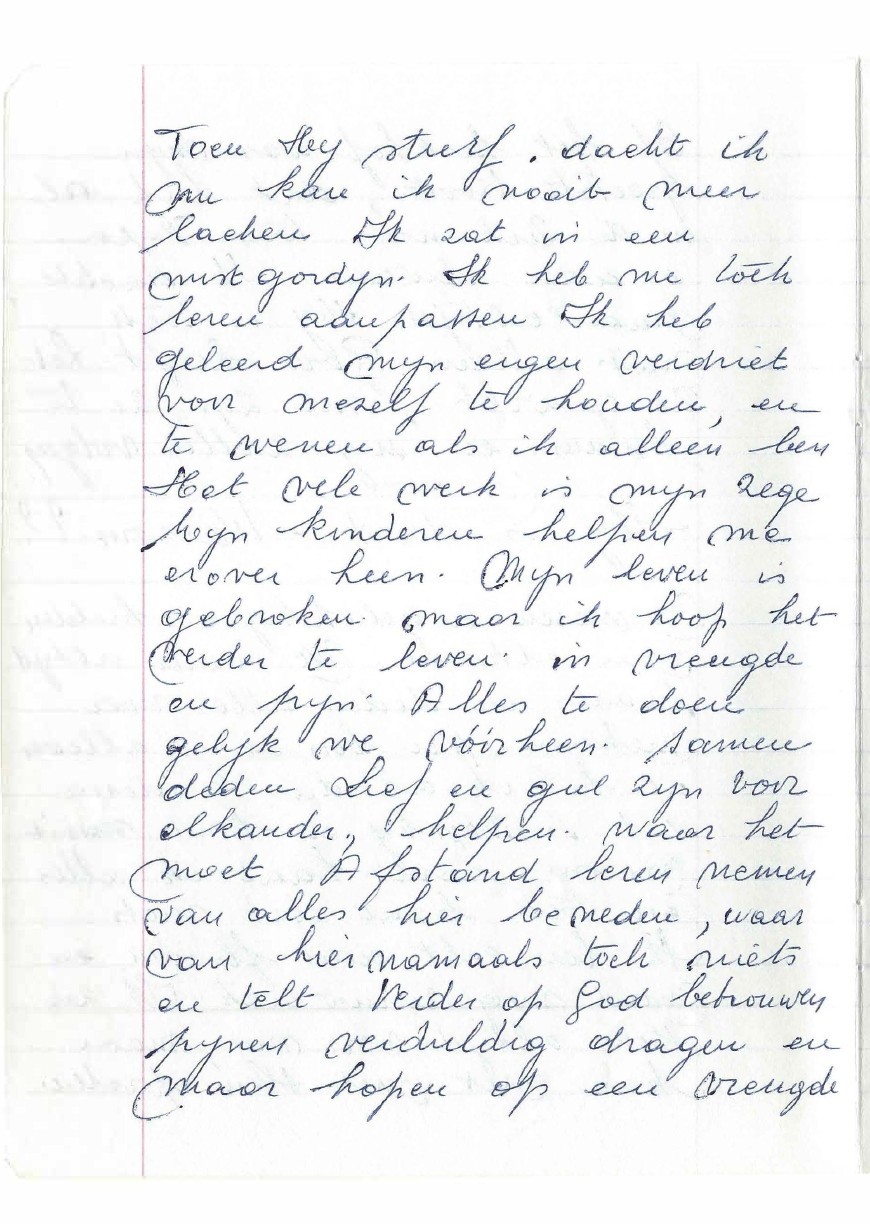 Toen Hij stierf. dacht ik
nu kan ik nooit meer
lachen Ik zat in een
mist gordijn. Ik heb me toch
leren aanpassen Ik heb
geleerd mijn eigen verdriet
voor mezelf te houden, en
te wenen als ik alleen ben
Het vele werk is mijn zege
Mijn kinderen helpen me
erover heen. Mijn leven is
gebroken. maar ik hoop het
verder te leven. in vreugde
en pijn. Alles te doen
gelijk we vóórheen. samen
deden Lief en gul zijn voor
elkander, helpen. waar het
moet Afstand leren nemen
van alles hier beneden, waar
van hiernamaals toch niets
en telt Verder op God betrouwen
pijnen verduldig dragen en
maar hopen op een vreugde